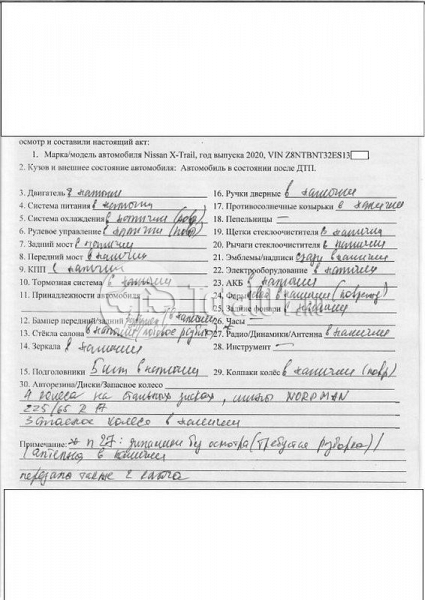 осмотр и составили настоящий акт:
1. Марка/модель автомобиля Nissan X-Trail, год выпуска 2020, VIN Z8NTBNT32ES13
2. Кузов и внешнее состояние автомобиля: Автомобиль в состоянии после ДТП.
3. Двигатель в наличии
16. Ручки дверные в наличии
4. Система питания в наличии
17. Противосолнечные козырьки в наличии
5. Система охлаждения в наличии (повр)
18. Пепельницы —
6. Рулевое управление в наличии (повр)
19. Щетки стеклоочистителя в наличии
7. Задний мост в наличии
20. Рычаги стеклоочистителя в наличии
8. Передний мост в наличии
21. Эмблемы/надписи сзади в наличии
9. КПП в наличии
22. Электрооборудование в наличии
10. Тормозная система в наличии
23. АКБ в наличии
11. Принадлежности автомобиля
24. Фары в наличии
25. Задние фонари в наличии
12. Бампер передний/задний в наличии
26. Часы —
13. Стёкла салона в наличии
27. Радио/Динамики/Антенна в наличии
14. Зеркала в наличии
28. Инструмент —
15. Подголовники 5 шт в наличии
29. Колпаки колёс в наличии (повр)
30. Авторезина/Диски/Запасное колесо
4 колеса на стальных дисках, шины NORDMAN
225/65 R 17
Запасное колесо в наличии
Примечание: * п 27: динамики без осмотра (требуется разборка)
антенна в наличии
передано также 2 ключа